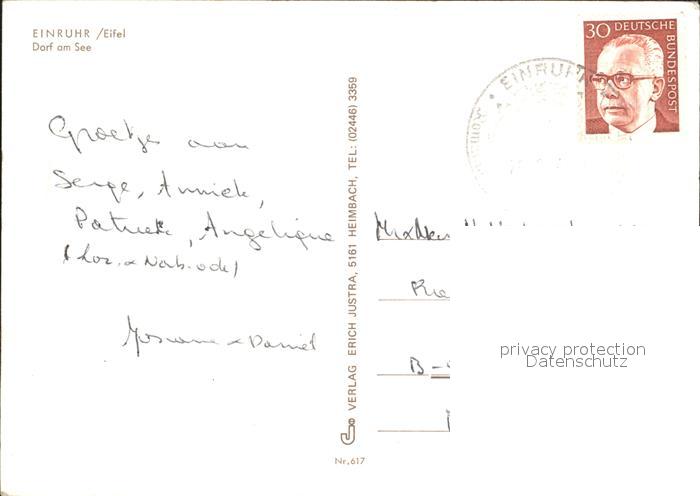 EINRUHR /Eifel
Dorf am See
30 DEUTSCHE
BUNDESPOST
EINRUHR
Groetjes aan
Serge, Annick,
Patrick, Angelique
Josiane & Daniël
VERLAG ERICH JUSTRA, 5161 HEIMBACH, TEL: (02446) 3359
B-
privacy protection
Datenschutz
Nr.617